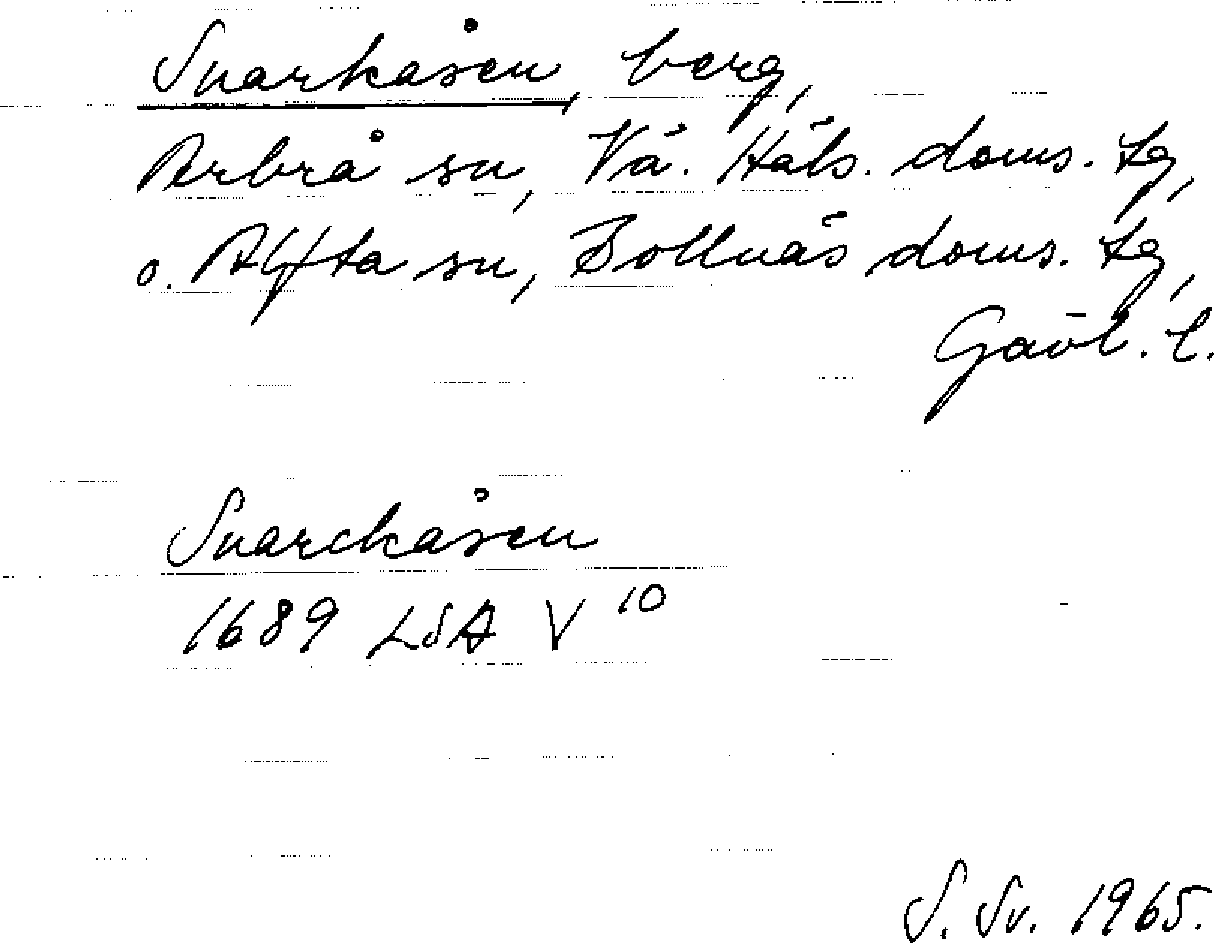 Snarkåsen, berg,
Arbrå sn, Vä. Häls. doms. tg,
o. Alfta sn, Bollnäs doms. tg,
Gävl. l.
Snarckåsen
1689 LSA V 10
S. Sv. 1965.